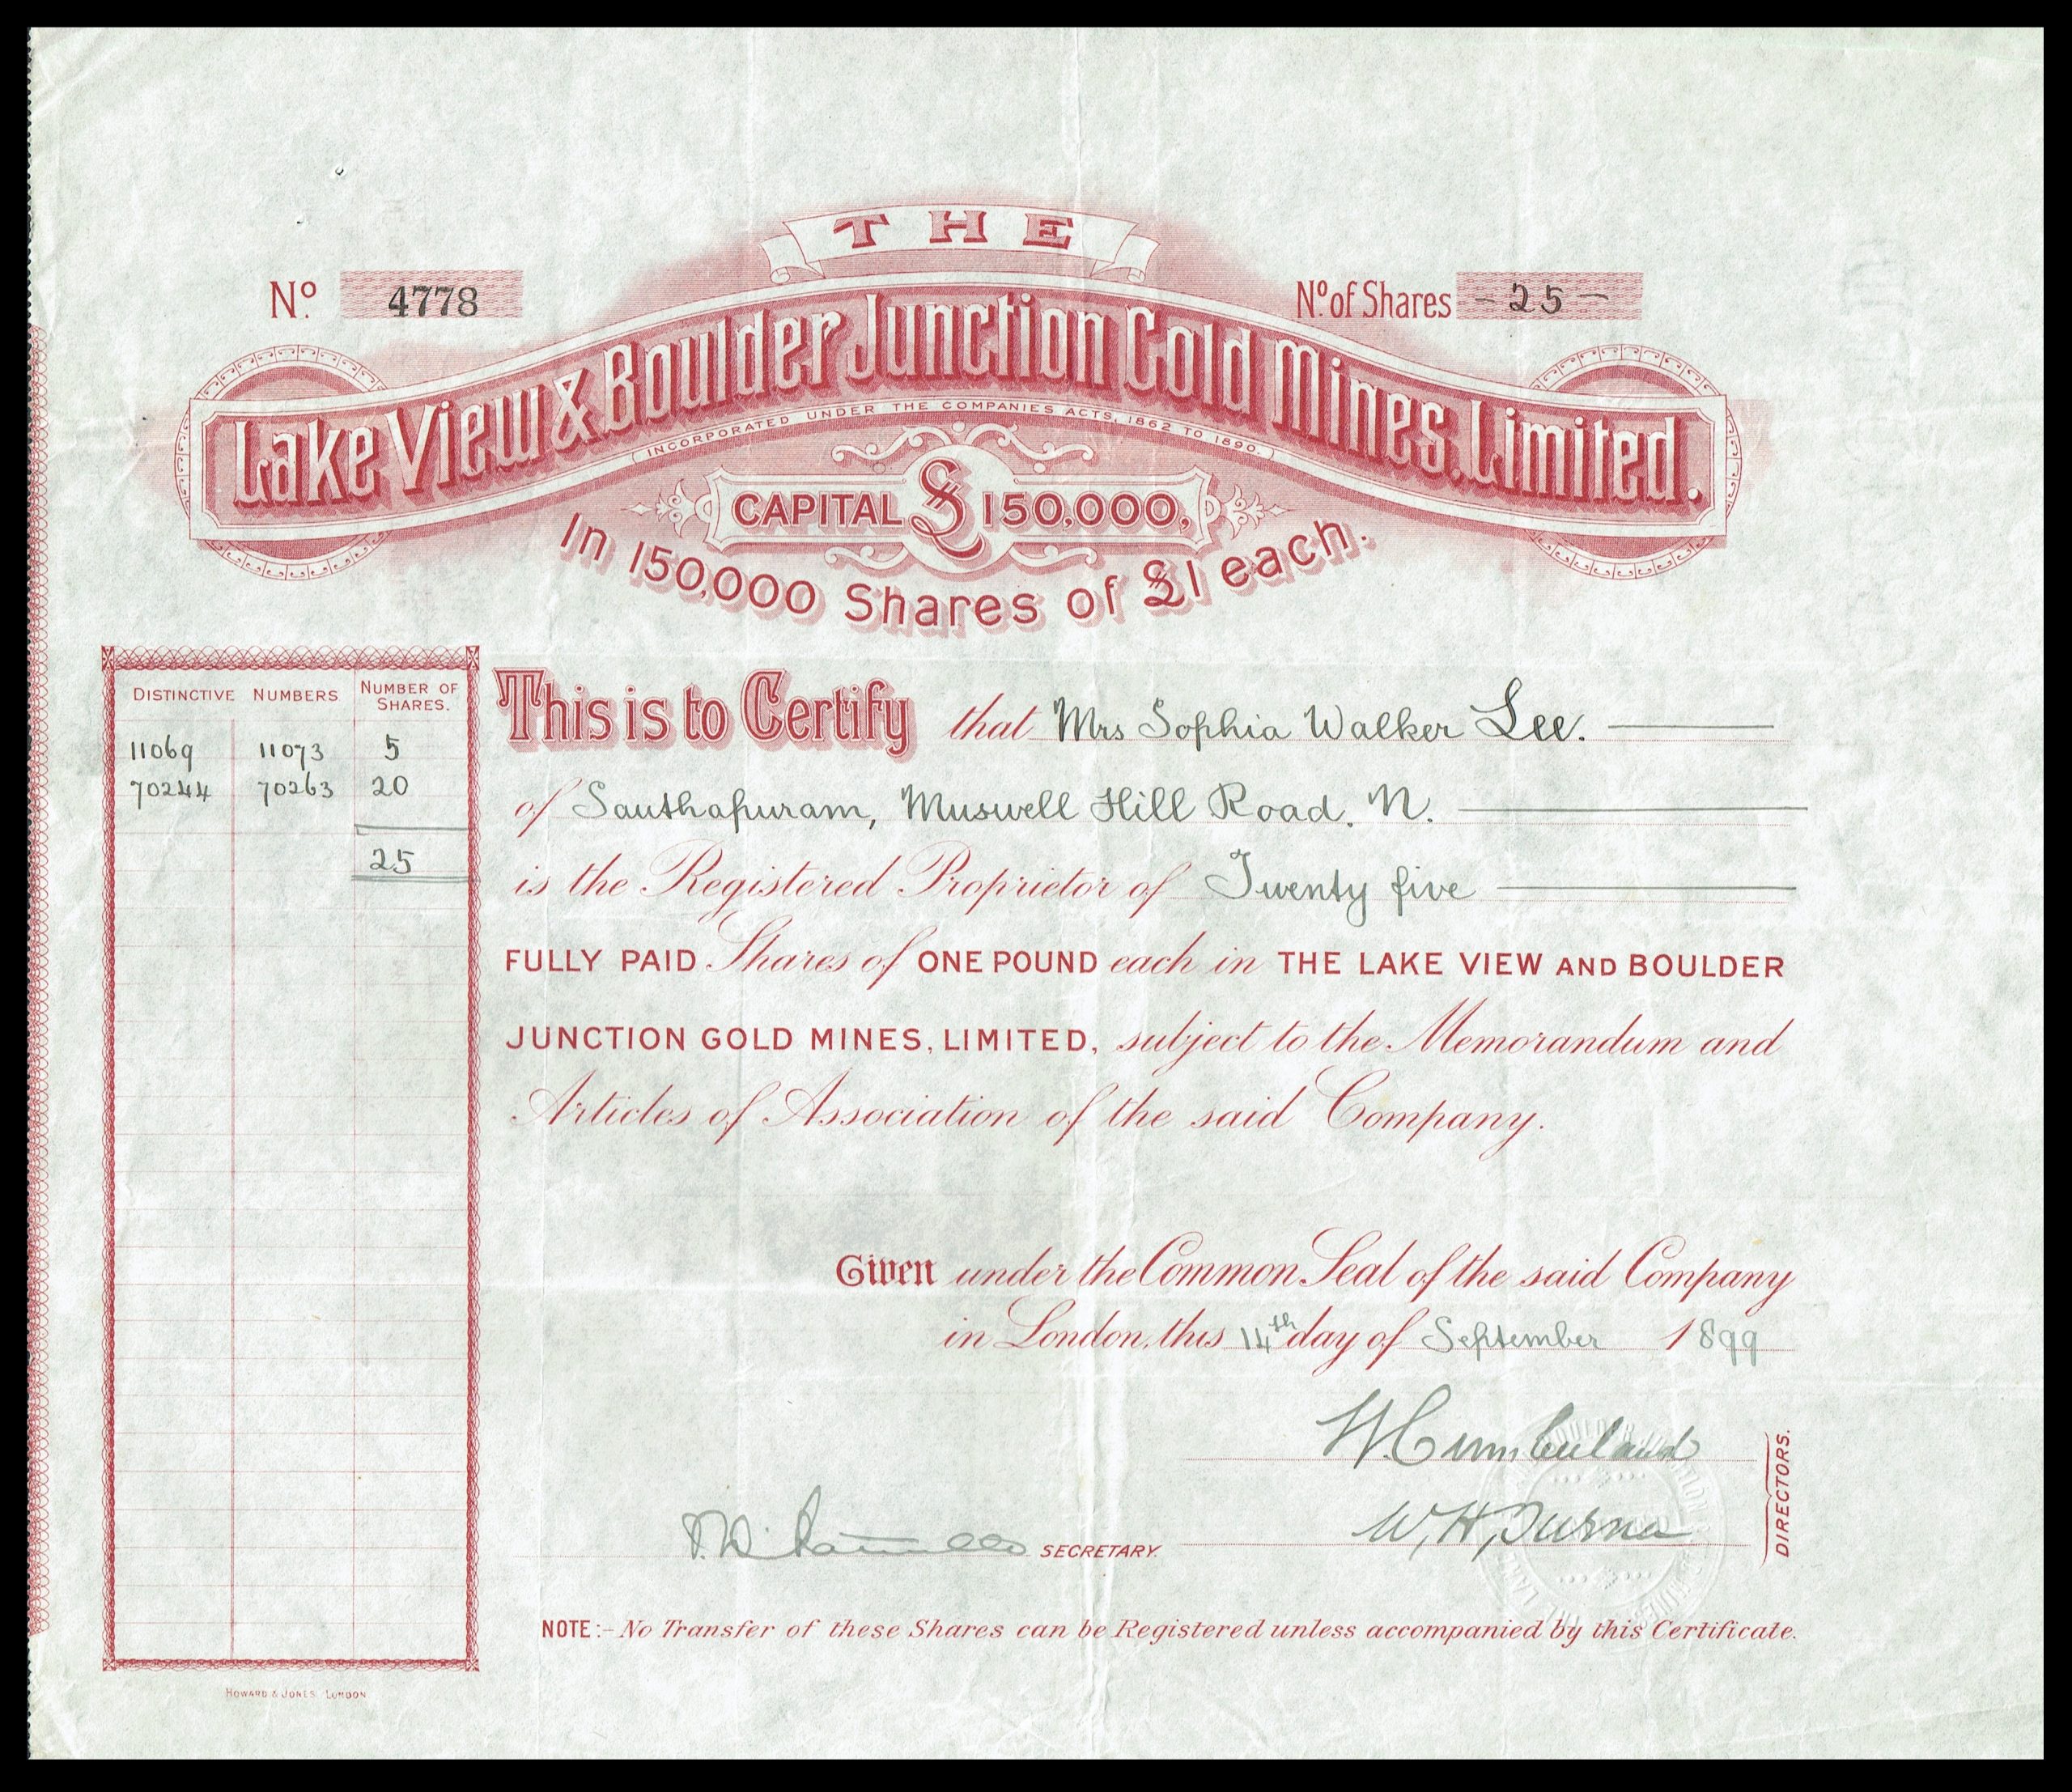 THE
No. 4778
No. of Shares - 25 -
Lake View & Boulder Junction Gold Mines, Limited.
(INCORPORATED UNDER THE COMPANIES ACTS, 1862 TO 1890.)
CAPITAL £150,000,
In 150,000 Shares of £1 each.
DISTINCTIVE NUMBERS NUMBER OF SHARES.
11069 11073 5
70244 70263 20
25
This is to Certify that Mrs Sophia Walker Lee.
of Santhapuram, Muswell Hill Road. N.
is the Registered Proprietor of Twenty five
FULLY PAID Shares of ONE POUND each in THE LAKE VIEW AND BOULDER
JUNCTION GOLD MINES, LIMITED, subject to the Memorandum and
Articles of Association of the said Company.
Given under the Common Seal of the said Company
in London, this 14th day of September 1899
W. Cumberland
W. H. Turner
DIRECTORS.
SECRETARY.
NOTE:- No Transfer of these Shares can be Registered unless accompanied by this Certificate.
HOWARD & JONES, LONDON